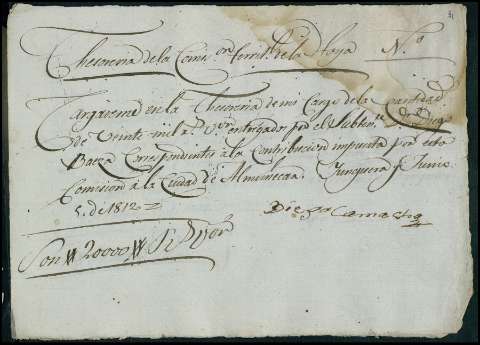 Thesoreria de la Comis.on territ.l de la Hoya N.o
Cargaseme en la Thesoreria de mi Cargo de la Cantidad
de Veinte mil r.s v.on entregados por el Subten.te
Baeza Correspondientes a la Contribucion impuesta por esta
Comision á la Ciudad de Almuñecar. Yunquera y Junio
5. de 1812
Diego Camacho
Son # 20000 # R.s Von